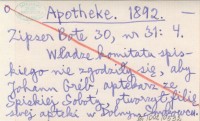 Apotheke. 1892. —
Zipser Bote 30, nr 31: 4.
Władze komitatu spis-
kiego nie zgodziły się, aby
Johann Greb aptekarz ze
Spiskiej Soboty, otworzył filię
swej apteki w Dolnym